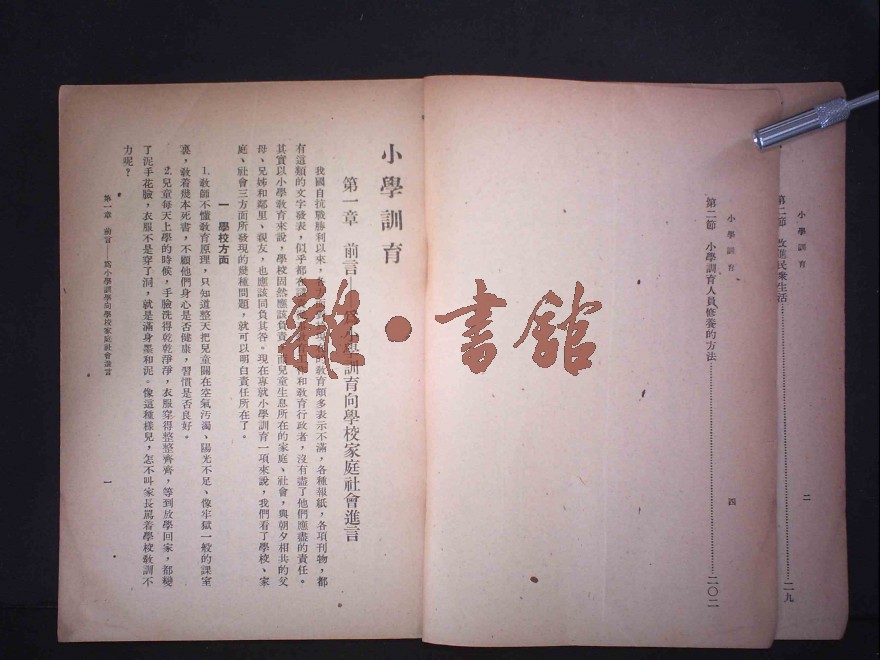 小學訓育
二
第二節　改進民衆生活……二一九
小學訓育
四
第二節　小學訓育人員修養的方法……二〇二
小學訓育
第一章　前言——爲小學訓育向學校家庭社會進言
我國自抗戰勝利以來，各
的教育頗多表示不滿，各種報紙，各項刊物，都
有這類的文字發表，似乎都在
和教育行政者，沒有盡了他們應盡的責任。
其實以小學教育來說，學校固然應該負責
而兒童生息所在的家庭、社會，與朝夕相共的父
母、兄姊和鄰里、親友，也應該同負其咎。現在專就小學訓育一項來說，我們看了學校、家
庭、社會三方面所發現的幾種問題，就可以明白責任所在了。
一　學校方面
1. 教師不懂教育原理，只知道整天把兒童關在空氣汚濁、陽光不足、像牢獄一般的課室
裏，教着幾本死書，不顧他們身心是否健康，習慣是否良好。
2. 兒童每天上學的時候，手臉洗得乾乾淨淨，衣服穿得整整齊齊，等到放學回家，都變
了泥手花臉，衣服不是穿了洞，就是滿身墨和泥。像這種樣兒，怎不叫家長罵着學校教訓不
力呢？
第一章　前言——爲小學訓學向學校家庭社會進言
一
雜·書館